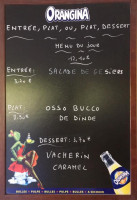 ORANGINA
ENTRÉE, PLAT, OU, PLAT, DESSERT
MENU DU JOUR
12,10€
ENTRÉE: SALADE DE GÉSIERS
PLAT: OSSO BUCCO
DE DINDE
DESSERT:
VACHERIN
CARAMEL